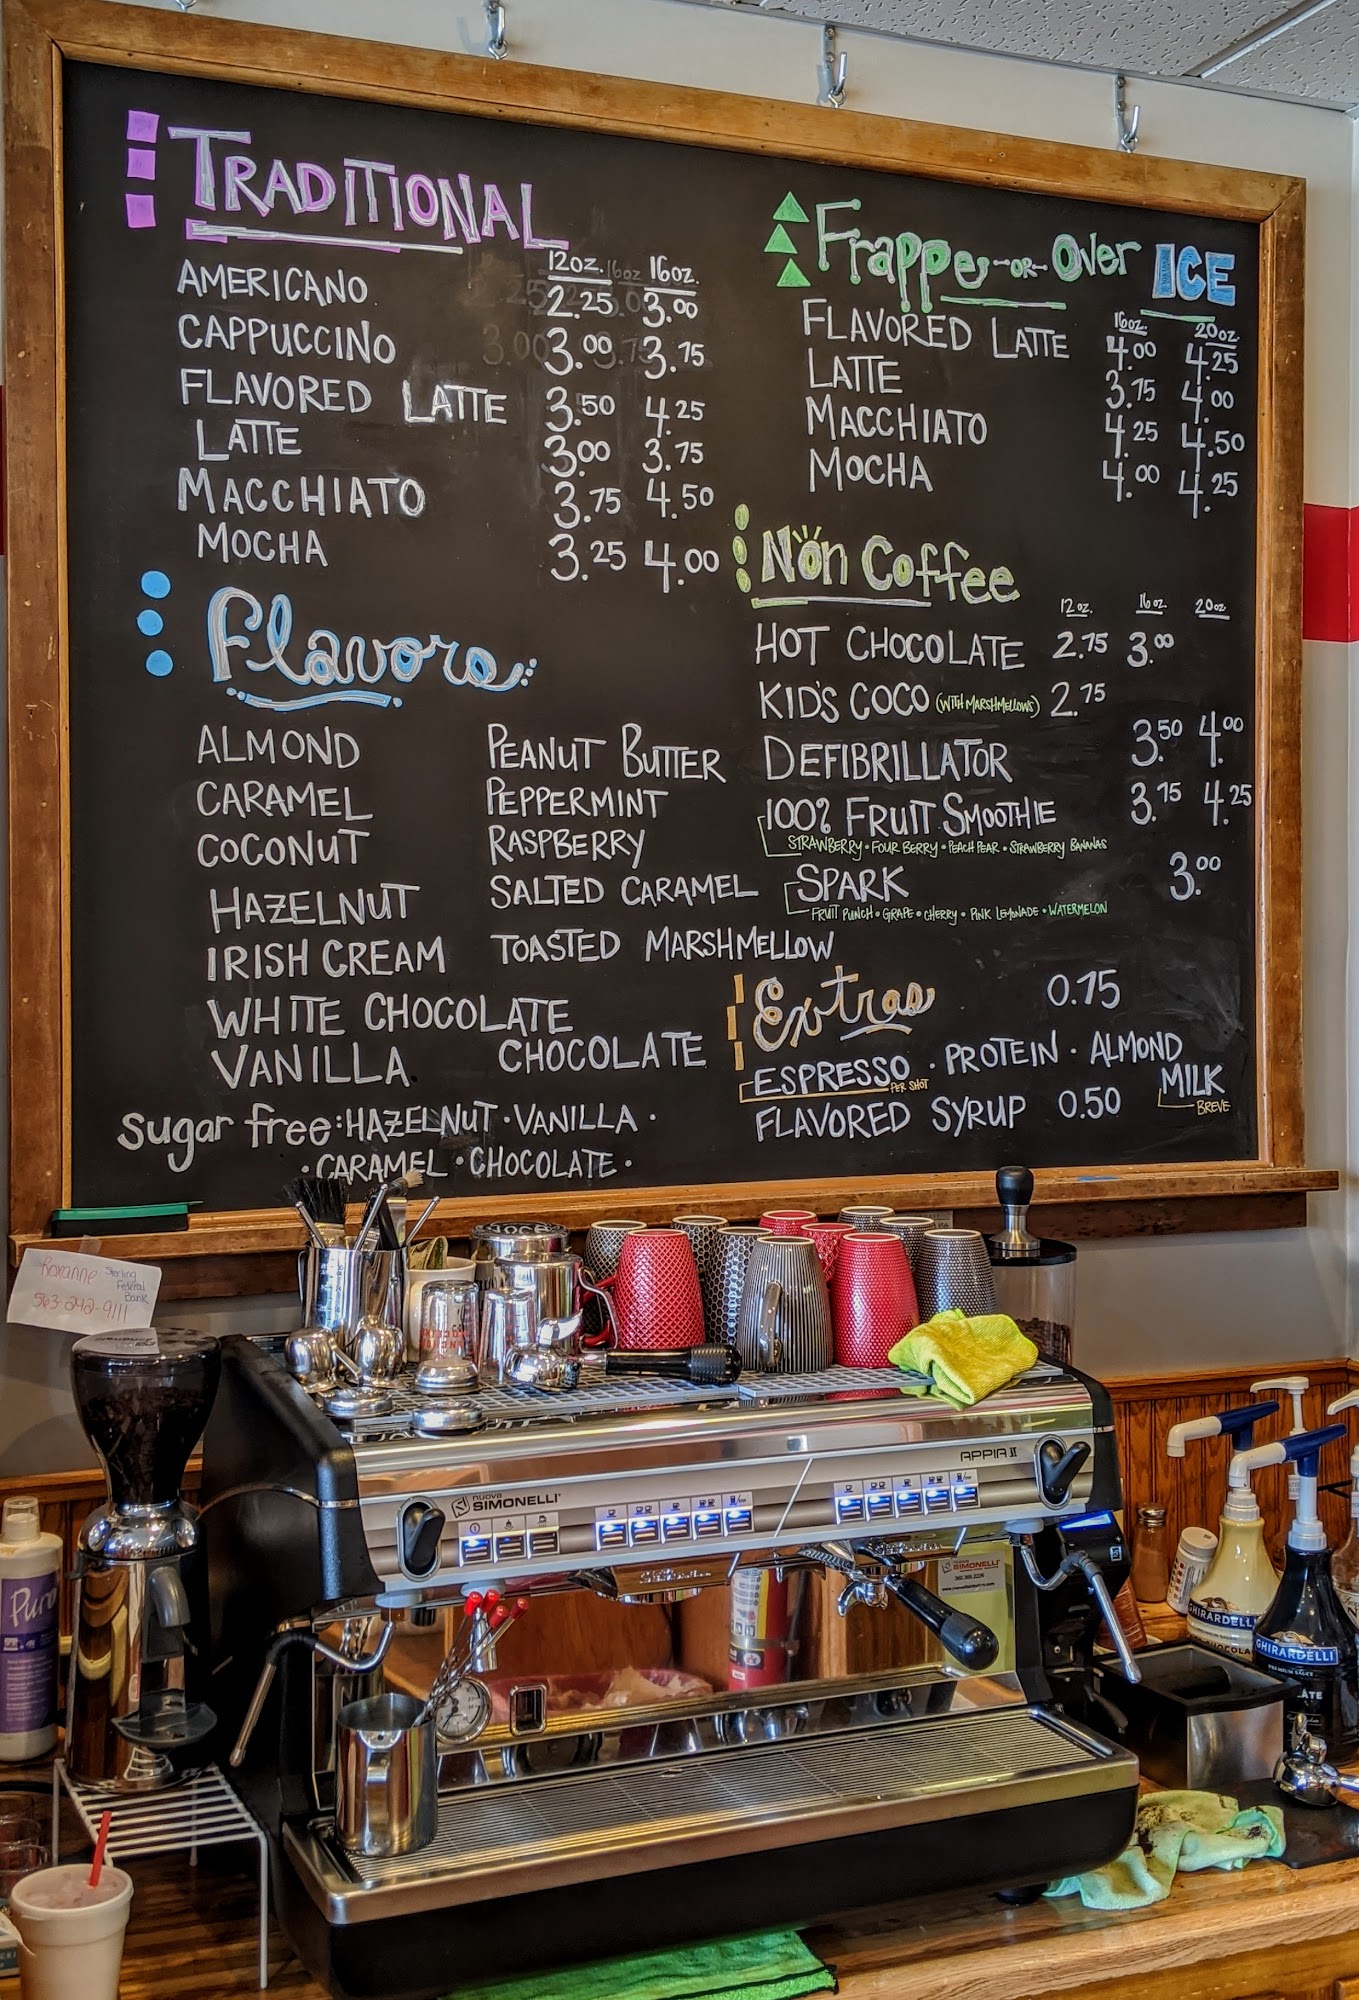 TRADITIONAL
12oz. 16oz.
AMERICANO 2.25 3.00
CAPPUCCINO 3.00 3.75
FLAVORED LATTE 3.50 4.25
LATTE 3.00 3.75
MACCHIATO 3.75 4.50
MOCHA 3.25 4.00
Flavors
ALMOND PEANUT BUTTER
CARAMEL PEPPERMINT
COCONUT RASPBERRY
HAZELNUT SALTED CARAMEL
IRISH CREAM TOASTED MARSHMELLOW
WHITE CHOCOLATE
VANILLA CHOCOLATE
sugar free: HAZELNUT · VANILLA ·
· CARAMEL · CHOCOLATE ·
Frappe -OR- Over ICE
16oz. 20oz.
FLAVORED LATTE 4.00 4.25
LATTE 3.75 4.00
MACCHIATO 4.25 4.50
MOCHA 4.00 4.25
Non Coffee
12oz. 16oz. 20oz.
HOT CHOCOLATE 2.75 3.00
KID'S COCO (WITH MARSHMELLOWS) 2.75
DEFIBRILLATOR 3.50 4.00
100% FRUIT SMOOTHIE 3.75 4.25
STRAWBERRY · FOUR BERRY · PEACH PEAR · STRAWBERRY BANANAS
SPARK 3.00
FRUIT PUNCH · GRAPE · CHERRY · PINK LEMONADE · WATERMELON
Extras 0.75
ESPRESSO · PROTEIN · ALMOND
PER SHOT
MILK
BREVE
FLAVORED SYRUP 0.50
Roxanne
Sterling
Federal
Bank
563-242-9111
APPIA II
nuova
SIMONELLI
Puro
GHIRARDELLI
GHIRARDELLI
PREMIUM SAUCE
SIMONELLI